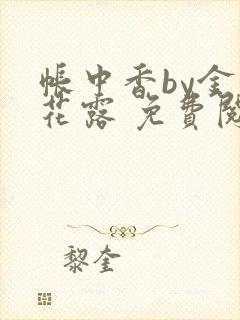 帳中香by金
花露 免費閱
黎奎